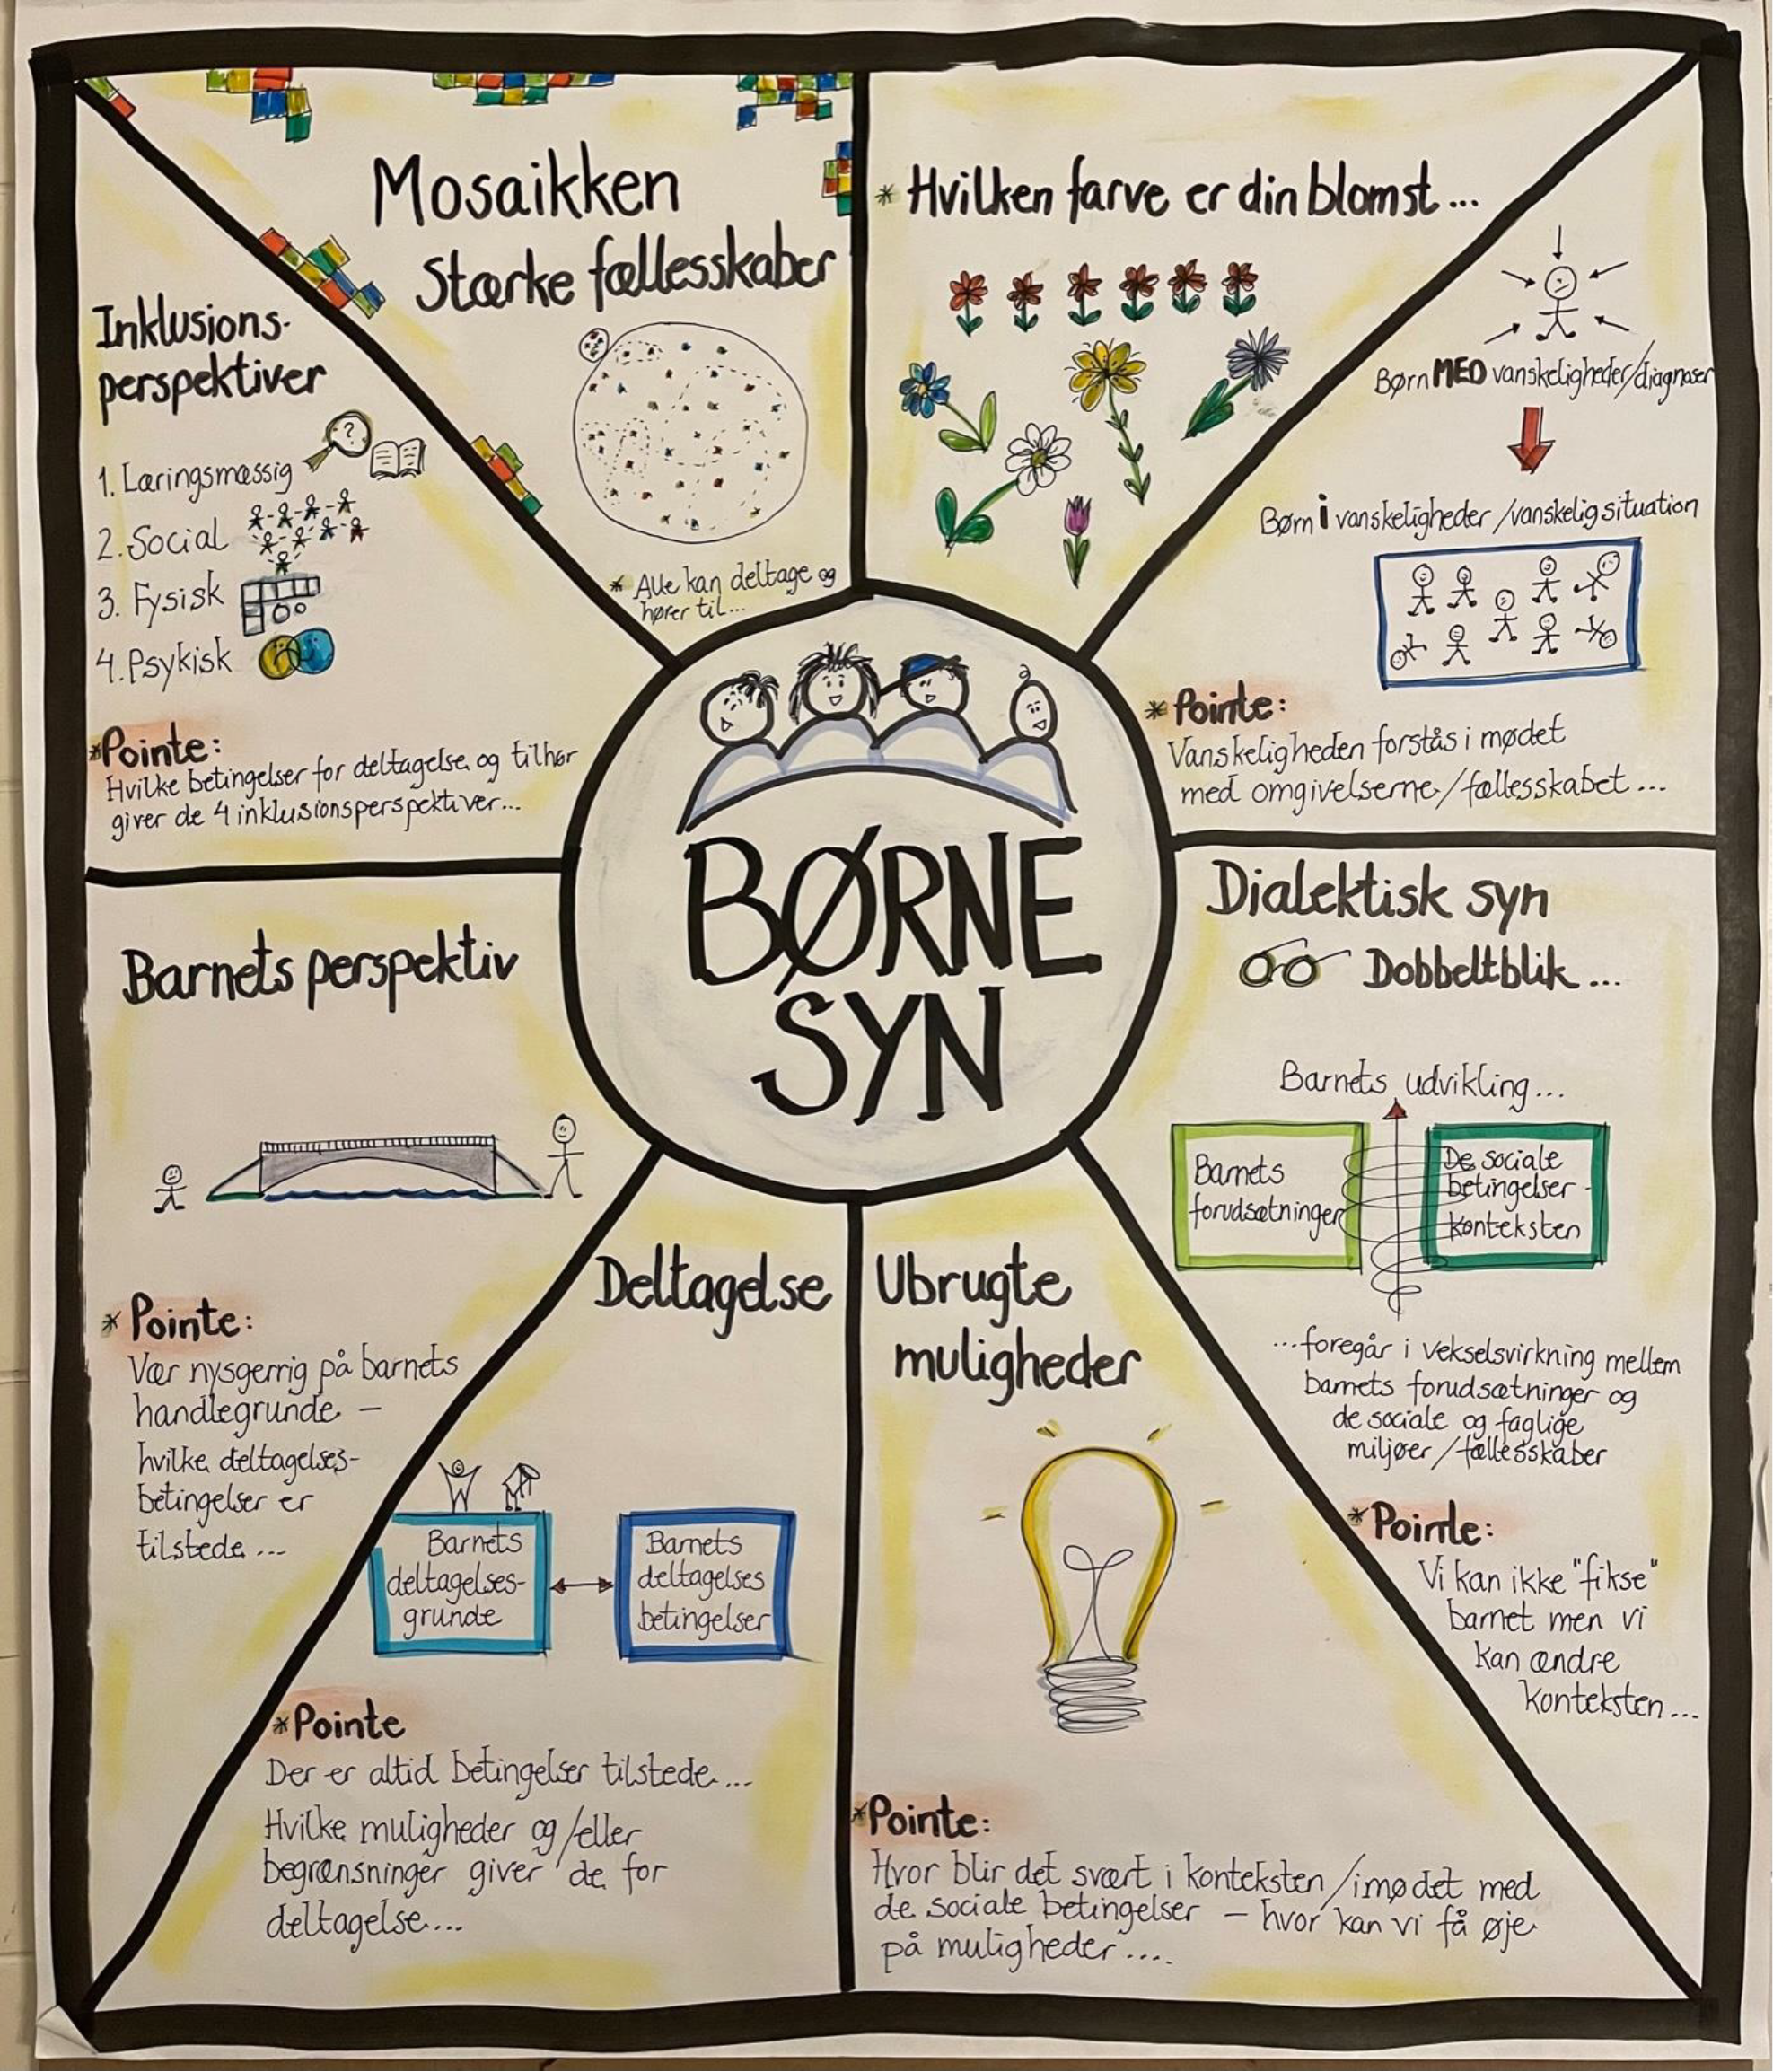 BØRNE
SYN
Mosaikken
Stærke fællesskaber
* Alle kan deltage og
hører til...
* Hvilken farve er din blomst...
Børn MED vanskeligheder/diagnoser
Børn i vanskeligheder /vanskelig situation
* Pointe:
Vanskeligheden forstås i mødet
med omgivelserne/fællesskabet...
Dialektisk syn
Dobbeltblik...
Barnets udvikling...
Barnets
forudsætninger
De sociale
betingelser -
konteksten
...foregår i vekselsvirkning mellem
barnets forudsætninger og
de sociale og faglige
miljøer/fællesskaber
* Pointe:
Vi kan ikke "fikse"
barnet men vi
kan ændre
konteksten...
Ubrugte
muligheder
* Pointe:
Hvor blir det svært i konteksten/imødet med
de sociale betingelser – hvor kan vi få øje
på muligheder....
Deltagelse
Barnets
deltagelses-
grunde
Barnets
deltagelses
betingelser
* Pointe
Der er altid betingelser tilstede...
Hvilke muligheder og/eller
begrænsninger giver de for
deltagelse....
Barnets perspektiv
* Pointe:
Vær nysgerrig på barnets
handlegrunde –
hvilke deltagelses-
betingelser er
tilstede...
Inklusions-
perspektiver
?
1. Læringsmæssig
2. Social
3. Fysisk
4. Psykisk
* Pointe:
Hvilke betingelser for deltagelse og tilhør
giver de 4 inklusionsperspektiver...